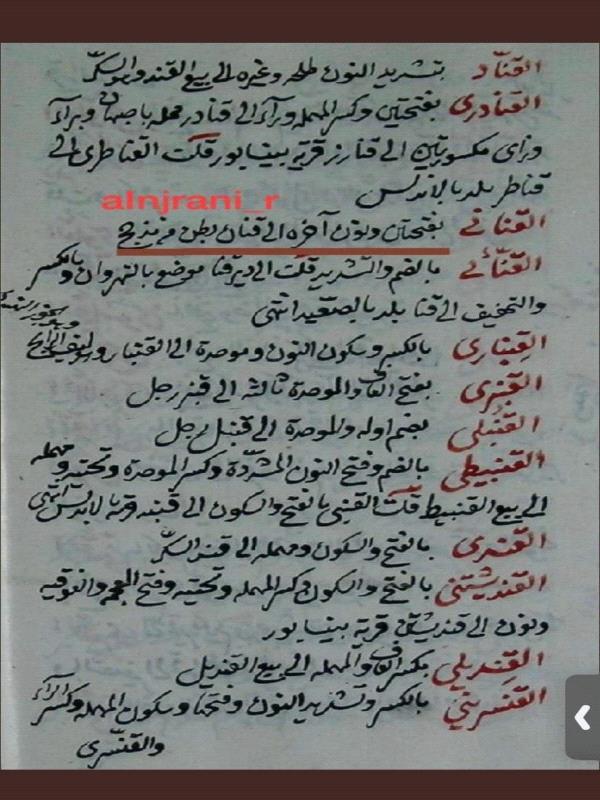 القنّاد بتشديد النون طلحه وغيره الى بيع القند وهو السكّر
القنادرى بفتحتين وكسر المهمله وراء الى قنادر محله باصبهان وبراء
وزاى مكسورتين الى قنارز قرية بنيسابور قلت القناطرى الى
قناطر بلد بالاندلس
alnjrani_r
القنانى بفتحتين ونون آخره الى قنان بطن من مذحج
القنّائى بالضم والتشديد قلت الى ديرقنا موضع بالنهروان وبالكسر
والتخفيف الى قنا بلد بالصعيد انتهى
القنبارى بالكسر وسكون النون وموحدة الى القنبار
القنبرى بفتح القاف والموحدة ثالثه الى قنبر رجل
القنبلى بضم اوله والموحدة الى قنبل رجل
القنبيطى بالضم وفتح النون المشدّدة وكسر الموحدة وتحتيه ومهمله
الى بيع القنبيط قلت القنبى بالفتح والسكون الى قنبه قرية بالاندلس انتهى
القندى بالفتح والسكون ومهمله الى قند السكّر
القنديشتنى بالفتح والسكون وكسر المهمله وتحتيه وفتح المعجمه والفوقيه
ونون الى قنديشتن قرية بنيسابور
القنديلى بكسر القاف والمهمله الى بيع القنديل
القنسرينى بالكسر وتشديد النون وفتحها وسكون المهمله وكسر الراء
والقنّسرى